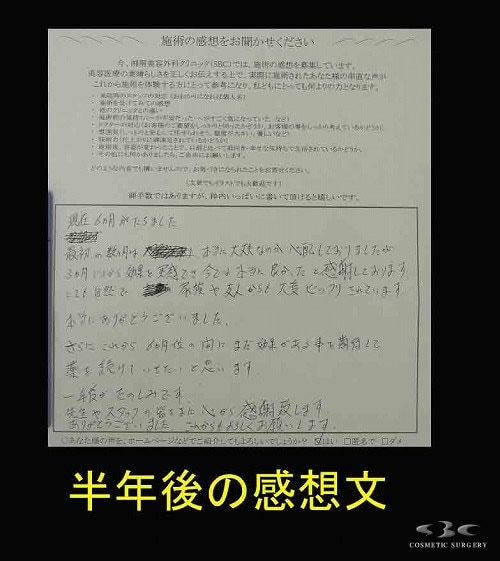 施術の感想をお聞かせください
今、湘南美容外科クリニック(SBC)では、施術の感想を募集しています。
美容医療の素晴らしさを正しくお伝えする上で、実際に施術されたあなた様の率直な声が
これから施術を体験する方にとって参考になり、私どもにとっても何よりの力となります。
・施術を受けてみての感想
・他のクリニックとの違い
どのような内容でも構いませんので、お気づきになられたことをお書きください。
(文章でもイラストでも大歓迎です)
御手数ではありますが、枠内いっぱいに書いて頂けると嬉しいです。
現在 6か月がたちました
最初の数か月は 本当に大丈夫なのか 心配しておりましたが
3か月 から 効果を実感でき 今では 本当に 良かったと感謝しております
とても自然で 家族や友人からも 大変ビックリされています
本当にありがとうございました。
さらにこれから 6か月位の間に まだ効果がある事を期待して
薬を続けていきたいと思います。
一年後がたのしみです。
先生やスタッフの皆さまに 心から感謝致します。
ありがとうございました これからもよろしくお願いします。
○あなた様の声を、ホームページなどでご紹介してもよろしいでしょうか? ☑はい □匿名で □ダメ
半年後の感想文
SBC
COSMETIC SURGERY